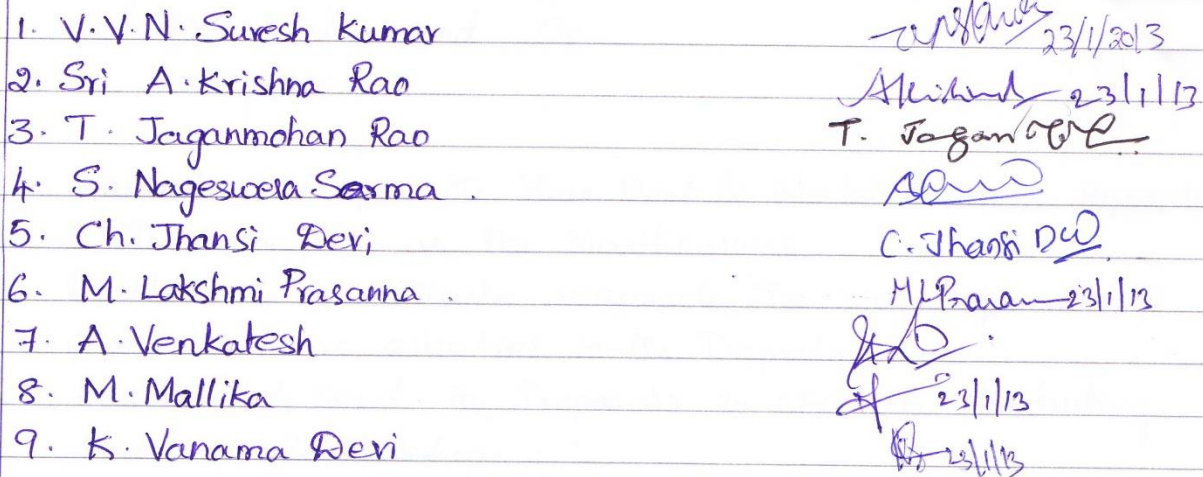 1. V.V.N. Suresh Kumar 23/1/2013
2. Sri A. Krishna Rao 23/1/13
3. T. Jaganmohan Rao T. Jagan
4. S. Nageswera Sarma.
5. Ch. Jhansi Devi C. Jhansi
6. M. Lakshmi Prasanna. 23/1/13
7. A. Venkatesh
8. M. Mallika 23/1/13
9. K. Vanama Devi 23/1/13